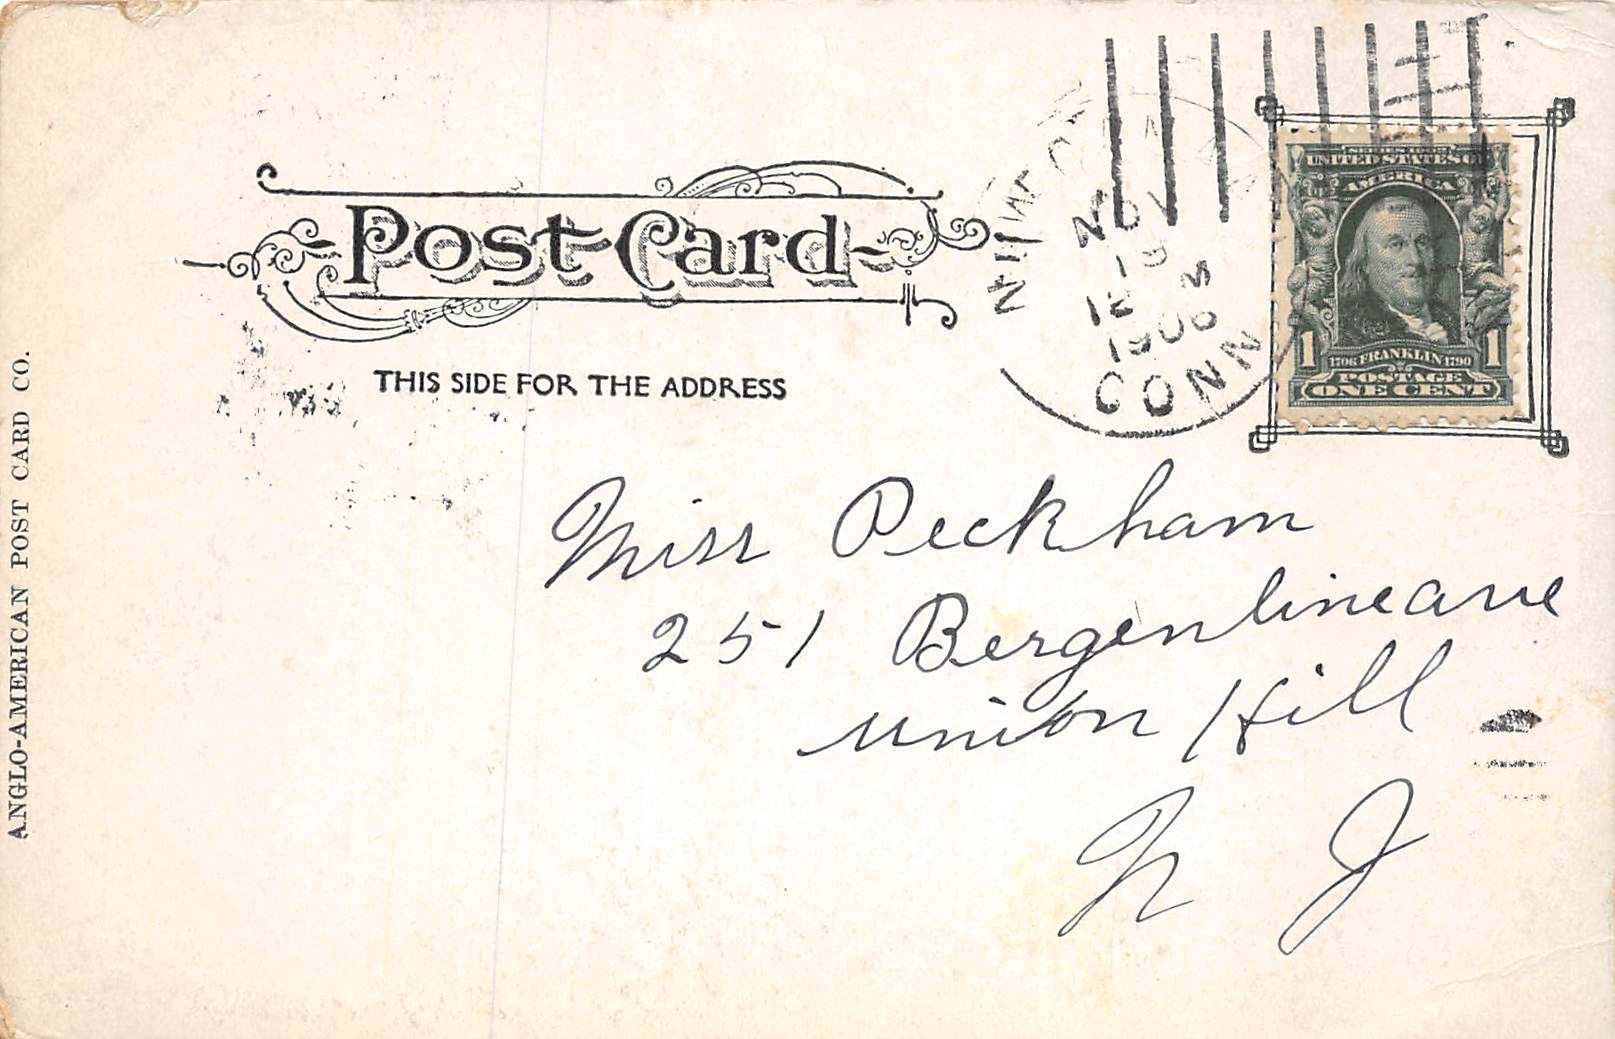 Post Card
THIS SIDE FOR THE ADDRESS
NOV
19
12 M
1906
CONN
SERIES 1902
UNITED STATES OF
AMERICA
1 1
1706 FRANKLIN 1790
POSTAGE
ONE CENT
Miss Peckham
251 Bergenline ave
Union Hill
N J
ANGLO-AMERICAN POST CARD CO.